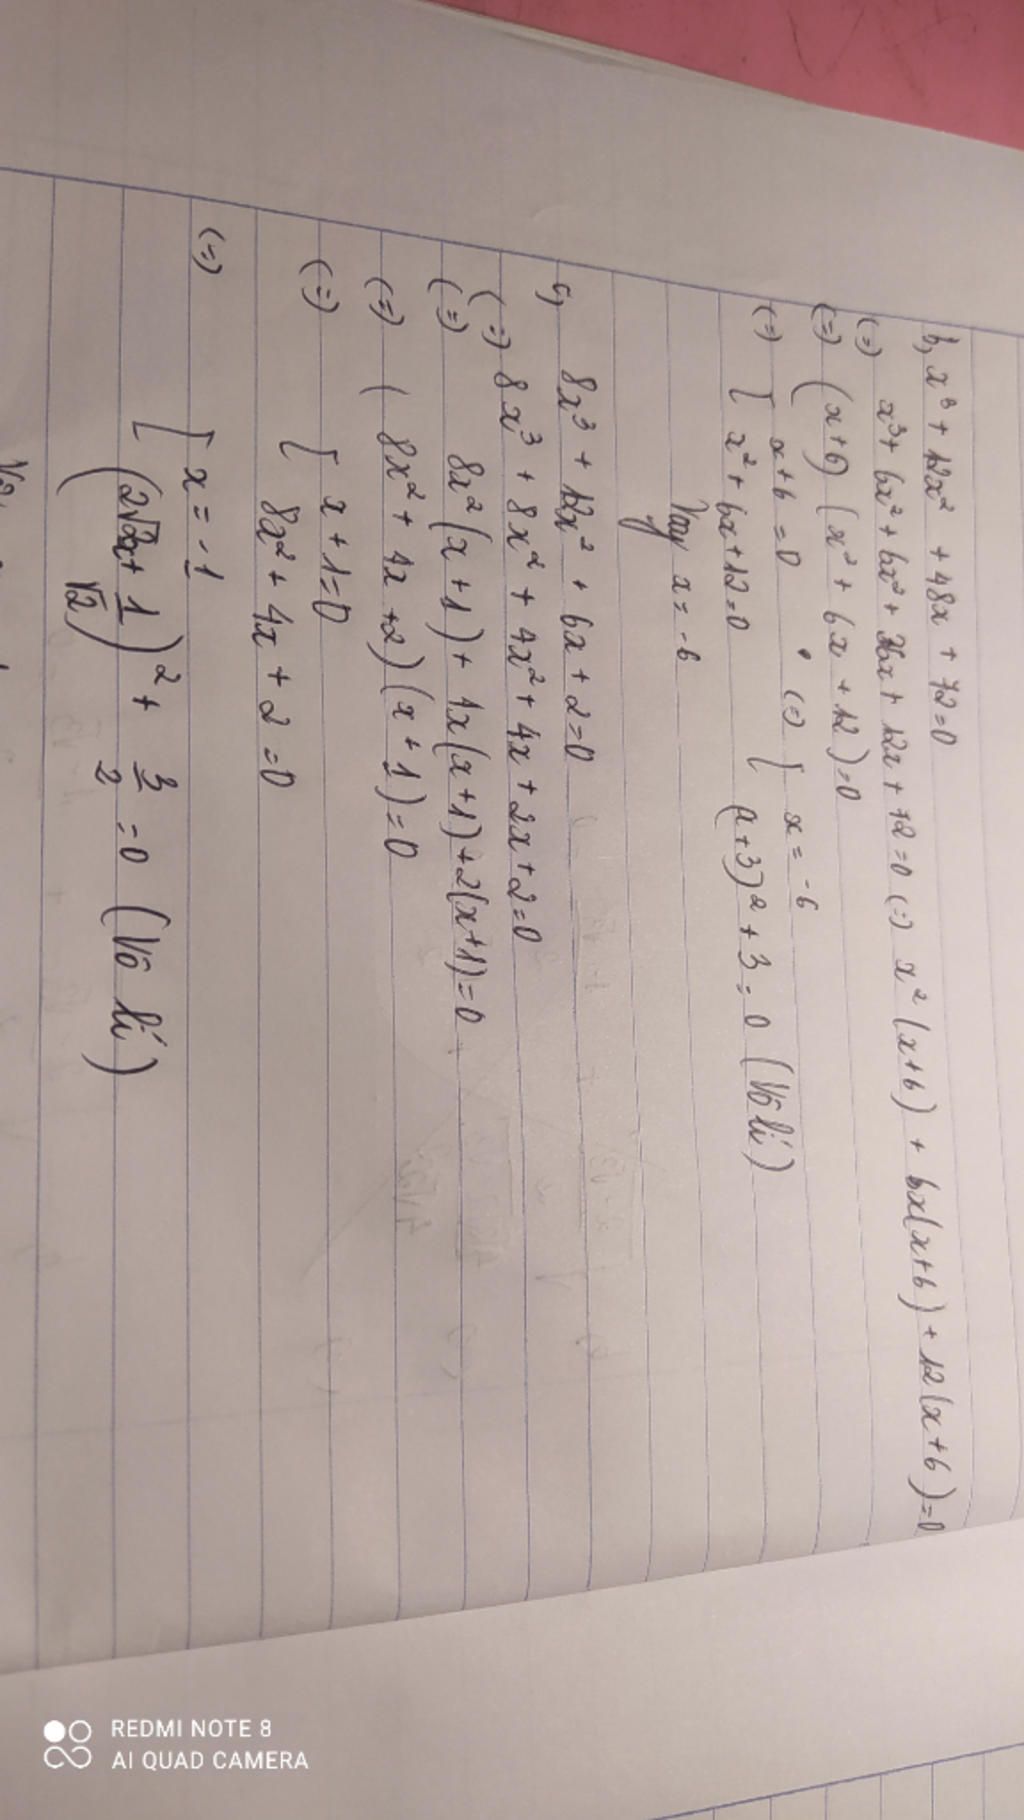 b, x³ + 12x² + 48x + 72 = 0
(=) x³ + 6x² + 6x² + 36x + 12x + 72 = 0 (=) x² (x+6) + 6x(x+6) + 12(x+6) = 0
(=) (x+6) (x² + 6x + 12) = 0
(=) [ x+6 = 0 (=) [ x = -6
x² + 6x + 12 = 0 (x+3)² + 3 = 0 (Vô lí)
Vậy x = -6
c, 8x³ + 12x² + 6x + 2 = 0
(=) 8x³ + 8x² + 4x² + 4x + 2x + 2 = 0
(=) 8x² (x+1) + 4x(x+1) + 2(x+1) = 0
(=) (8x² + 4x + 2)(x+1) = 0
(=) [ x+1 = 0
8x² + 4x + 2 = 0
(=) [ x = -1
(2√2x + 1/√2)² + 3/2 = 0 (Vô lí)
REDMI NOTE 8
AI QUAD CAMERA